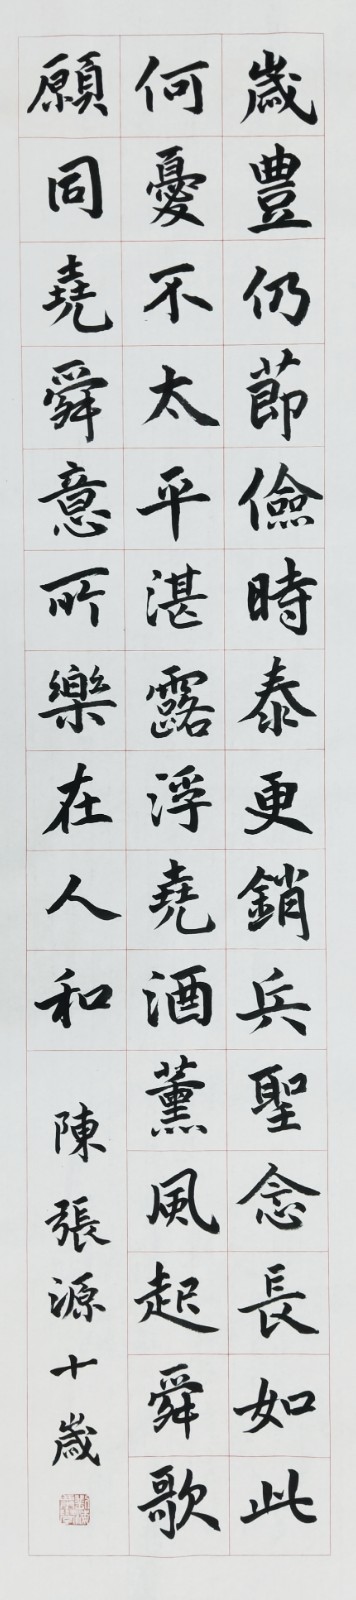 歲豊仍節儉時泰更銷兵聖念長如此
何憂不太平湛露浮堯酒薰風起舜歌
願同堯舜意所樂在人和
陳張源十歲